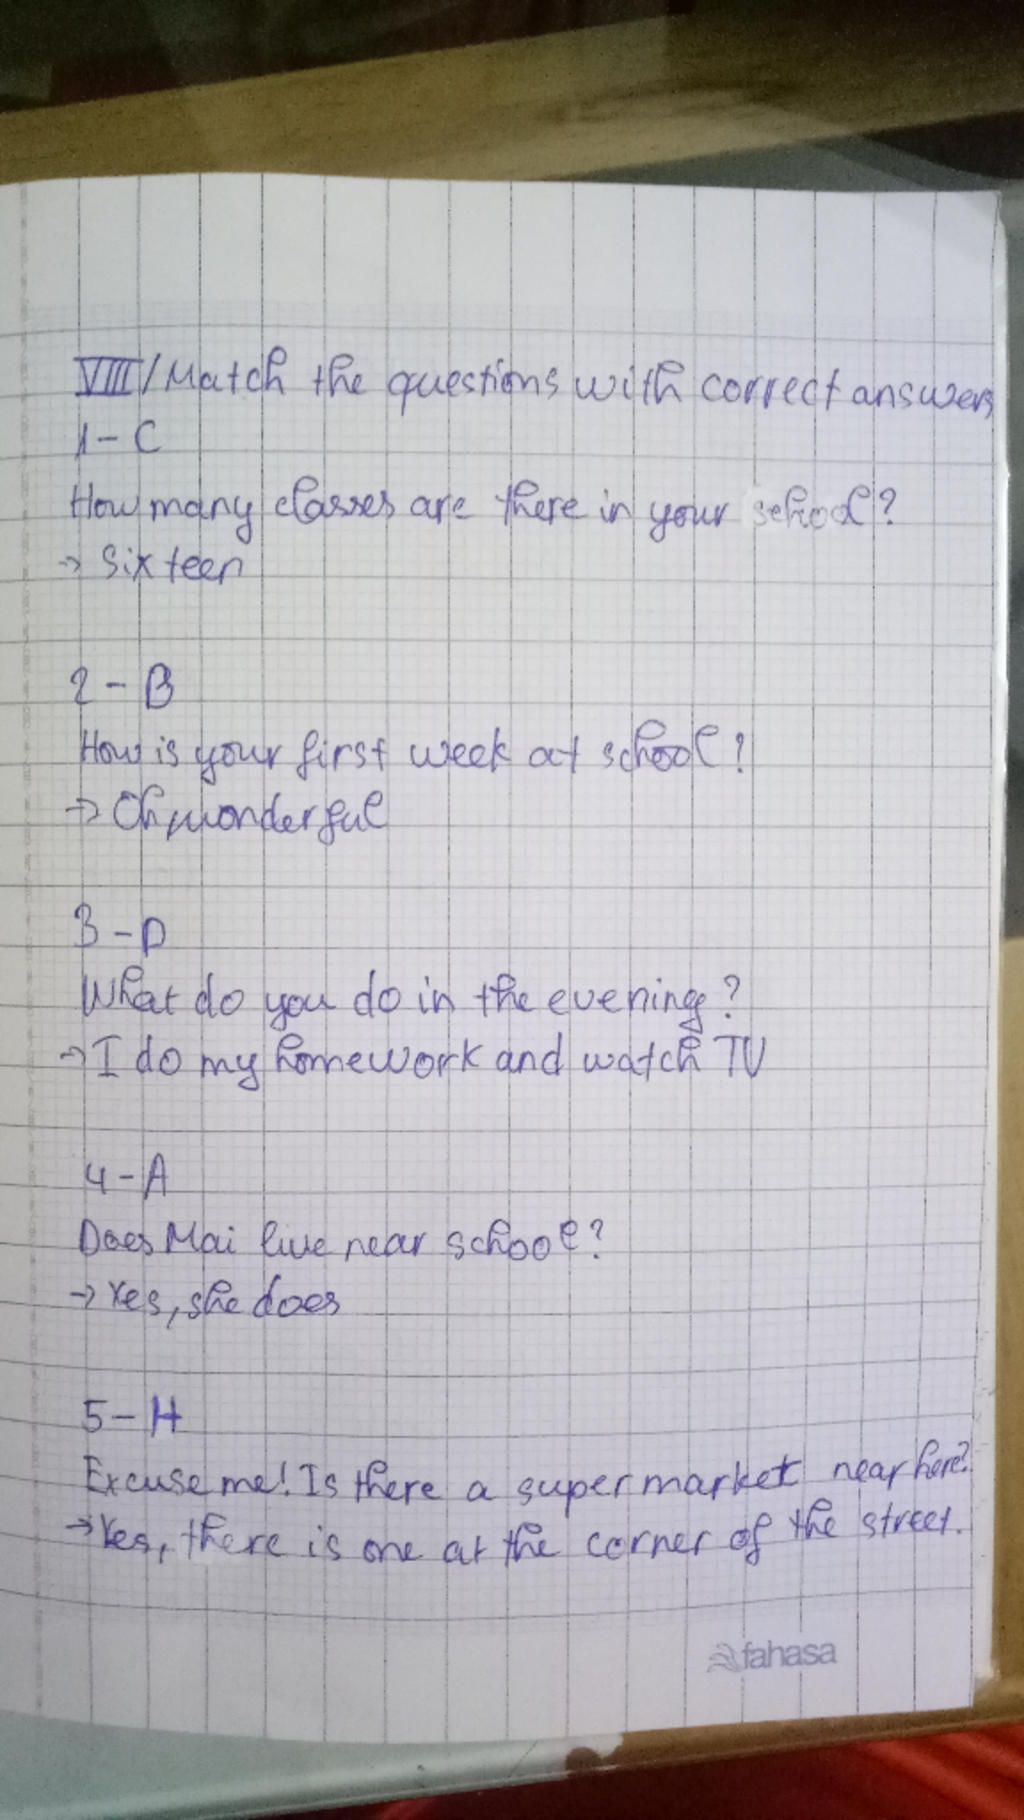 VIII/ Match the questions with correct answers
1 - C
How many classes are there in your school?
→ Sixteen
2 - B
How is your first week at school?
→ Oh, wonderful
3 - D
What do you do in the evening?
→ I do my homework and watch TV
4 - A
Does Mai live near school?
→ Yes, she does
5 - H
Excuse me! Is there a supermarket near here?
→ Yes, there is one at the corner of the street.
fahasa